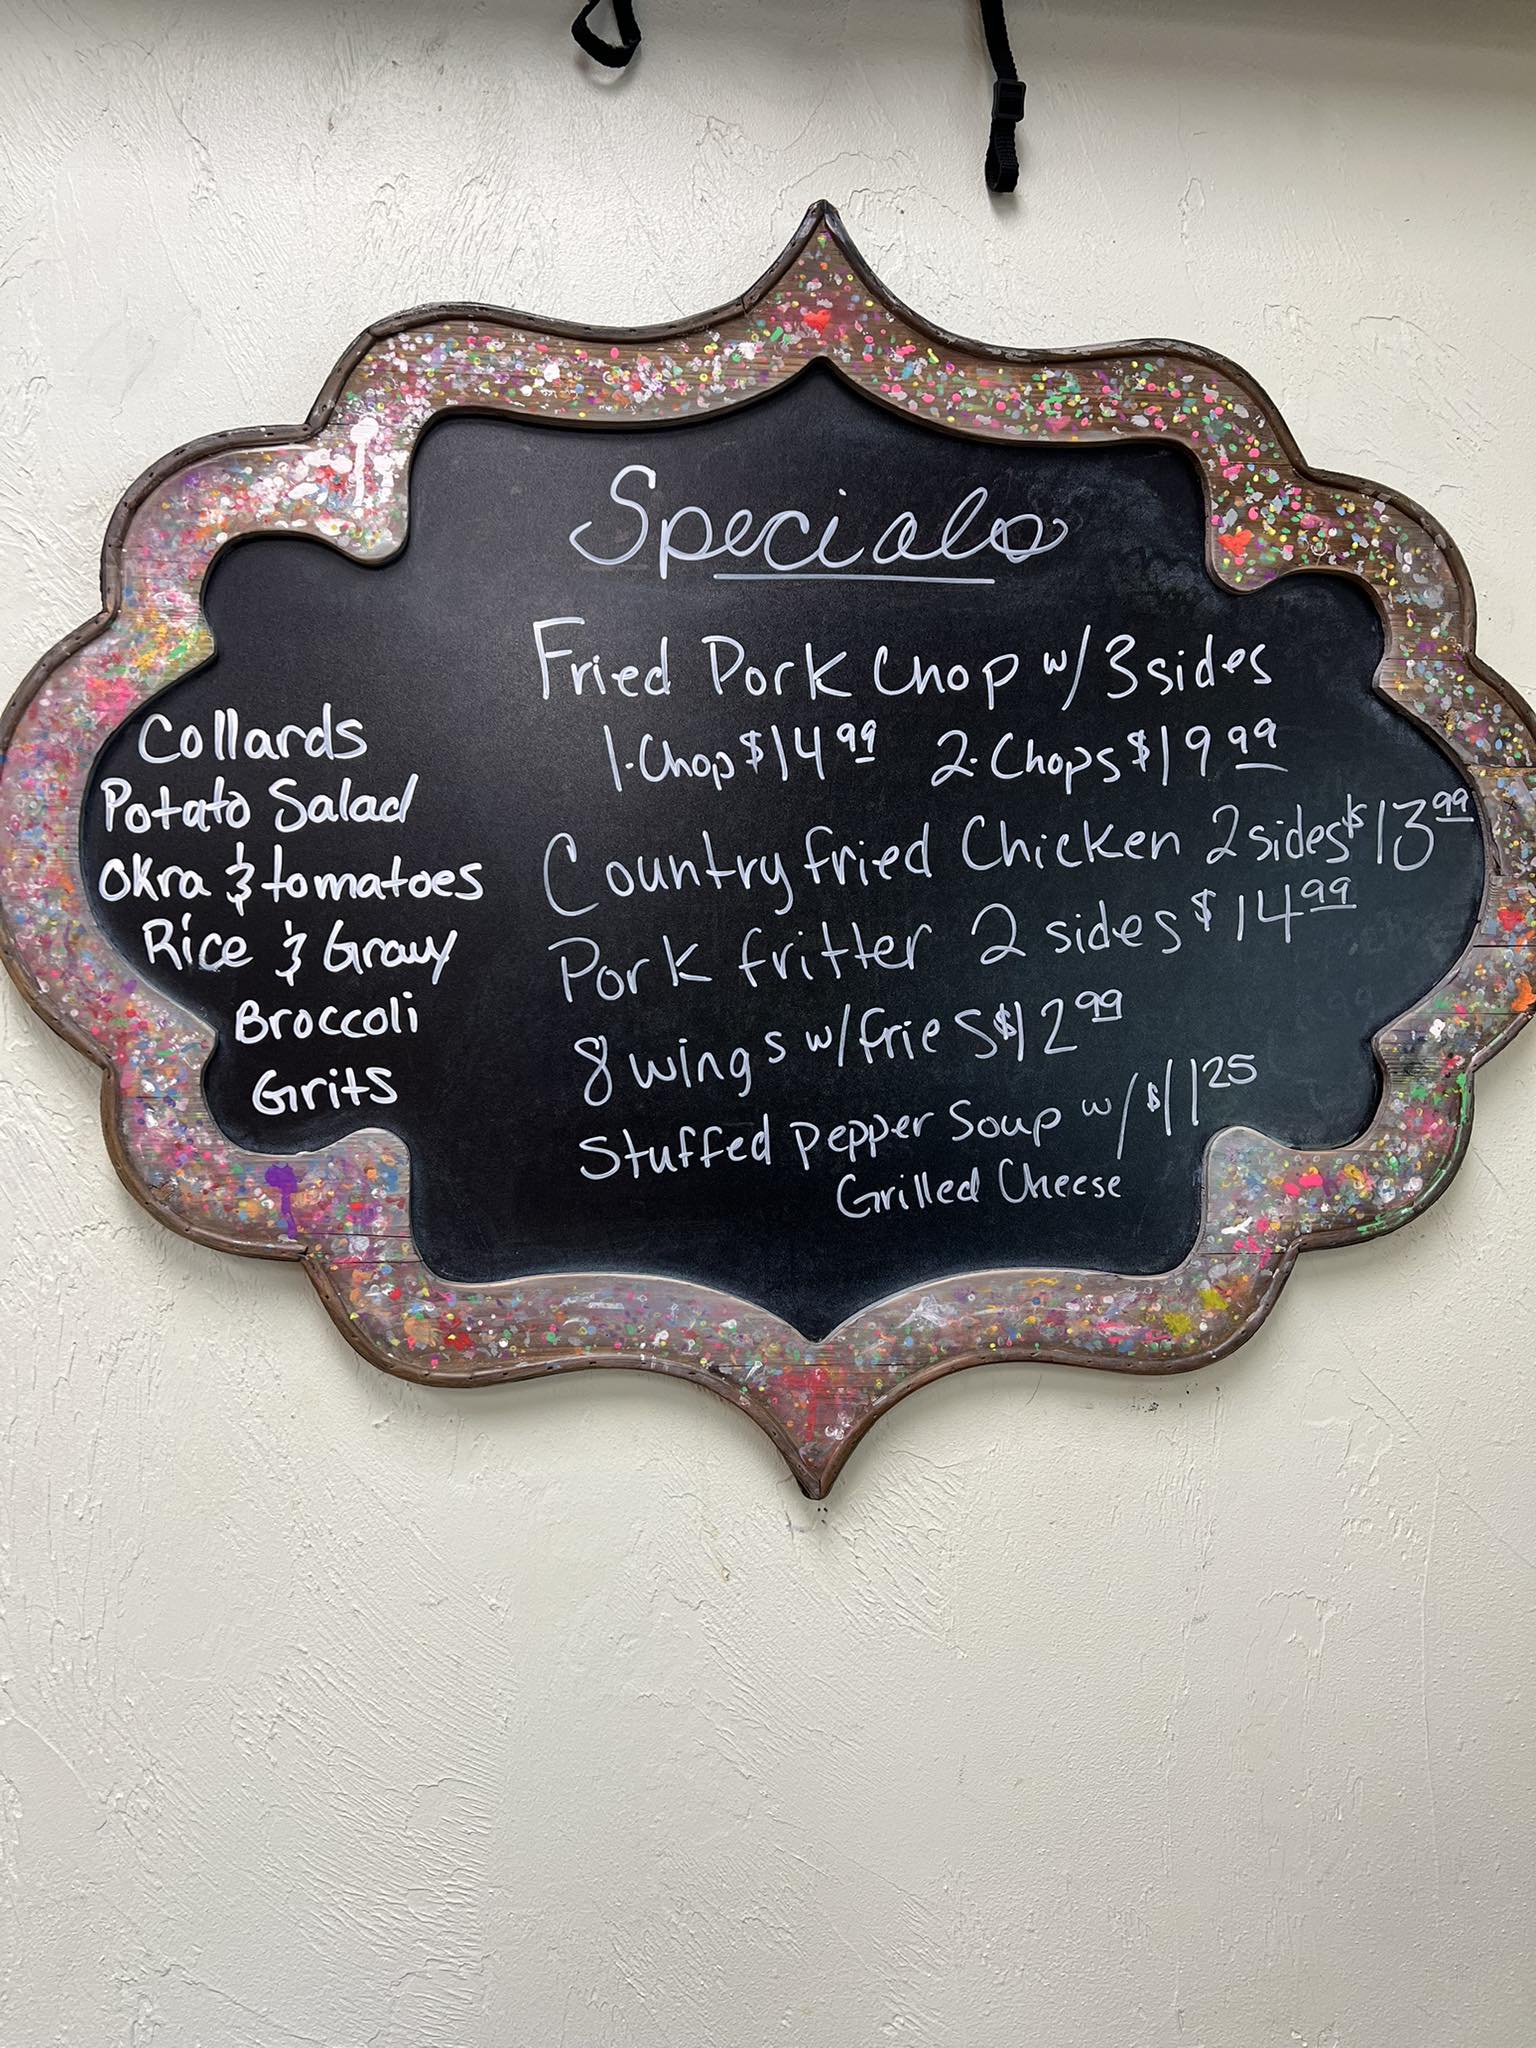 Specials
Fried Pork Chop w/ 3 sides
1-Chop $14.99 2-Chops $19.99
Country fried Chicken 2 sides $13.99
Pork fritter 2 sides $14.99
8 wings w/ fries $12.99
Stuffed pepper soup w/ $11.25
Grilled Cheese
Collards
Potato Salad
Okra & tomatoes
Rice & Gravy
Broccoli
Grits